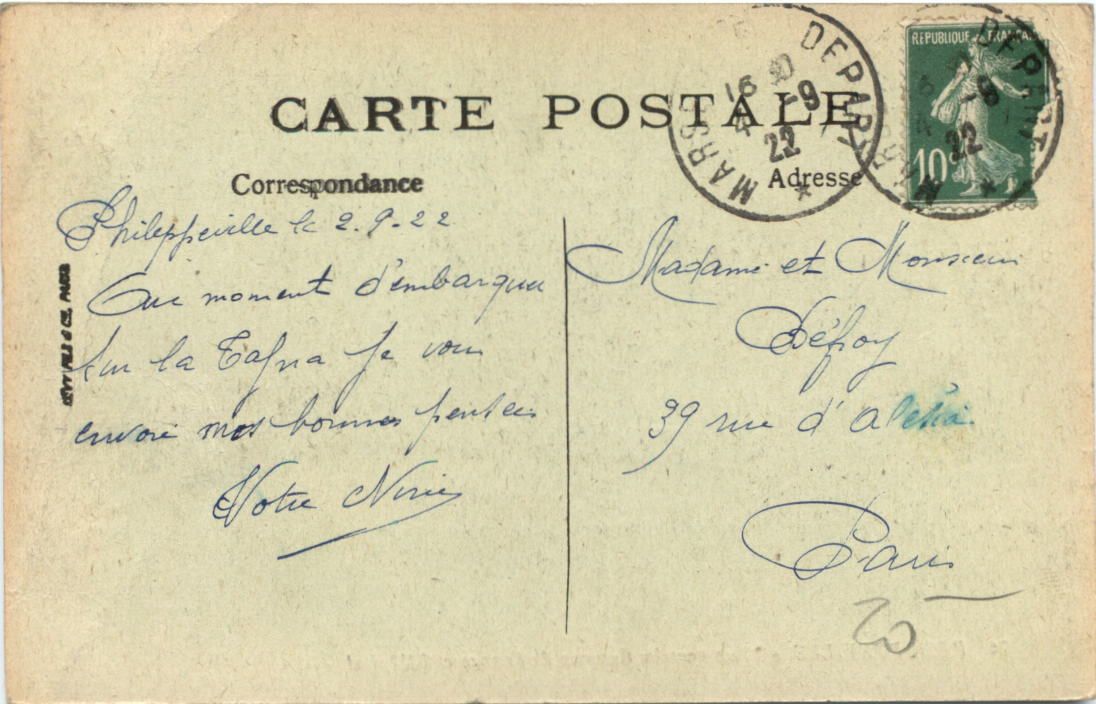 CARTE POSTALE
Correspondance
Philippeville le 2.9.22
Au moment d'embarquer
sur la Tafna je vous
envoie mes bonnes pensées
Votre Ninie
LEVY FILS & Cie, PARIS
Adresse
Madame et Monsieur
Défroy
39 rue d'Alésia
Paris
20
MARS DEPART
16 30
4 -9
22
REPUBLIQUE FRANÇAISE
10c
MARS DEPART
4 -9
22